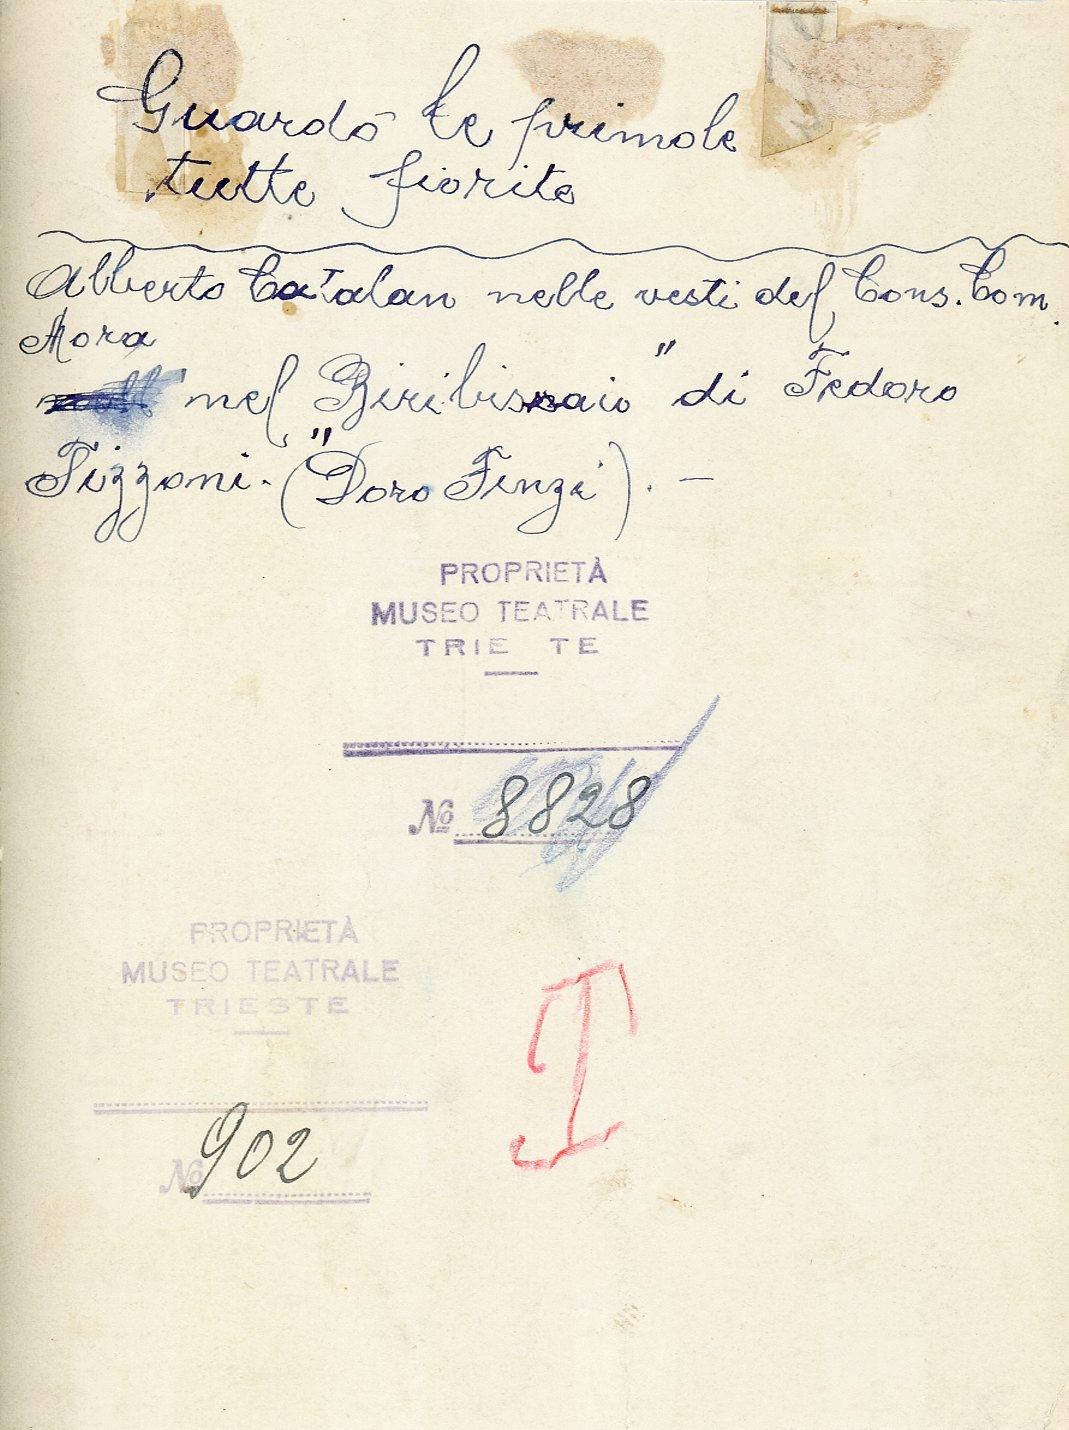 Guardò le primole
tutte fiorite
Alberto Catalan nelle vesti del Cons. Com.
Mora
nel "Biribissaio" di Fedoro
Tizzoni. ("Doro Finzi). —
PROPRIETÀ
MUSEO TEATRALE
TRIE TE
No 8828
PROPRIETÀ
MUSEO TEATRALE
TRIESTE
No 902
I